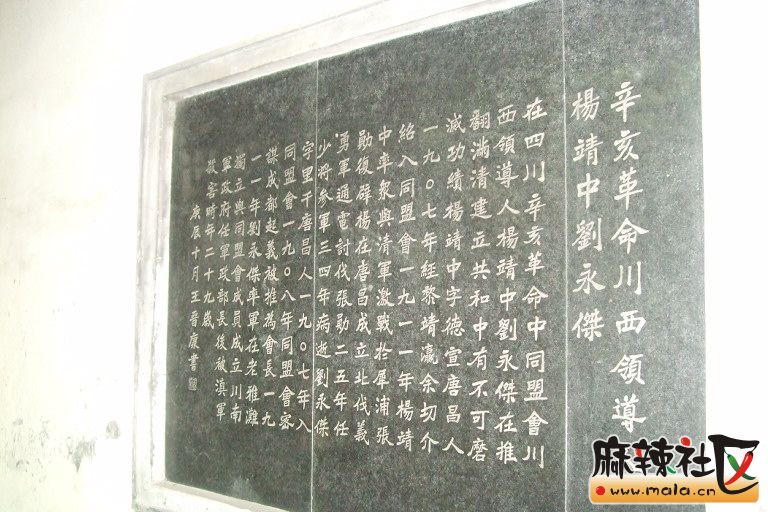 辛亥革命川西領導
楊靖中劉永傑
在四川辛亥革命中同盟會川
西領導人楊靖中劉永傑在推
翻滿清建立共和中有不可磨
滅功績楊靖中字德宣唐昌人
一九〇七年經黎靖瀛余切介
紹入同盟會一九一一年楊靖
中率衆與清軍激戰於犀浦張
勛復辟楊在唐昌成立北伐義
勇軍通電討伐張勛二五年任
少將參軍三四年病逝劉永傑
字里千唐昌人一九〇七年入
同盟會一九〇八年同盟會密
謀成都起義被推為會長一九
一一年劉永傑率軍在老雅灘
獨立與同盟會成員成立川南
軍政府任軍政部長後被滇軍
殺害時年二十九歲
庚辰十月王晉康書
麻辣社区
www.mala.cn